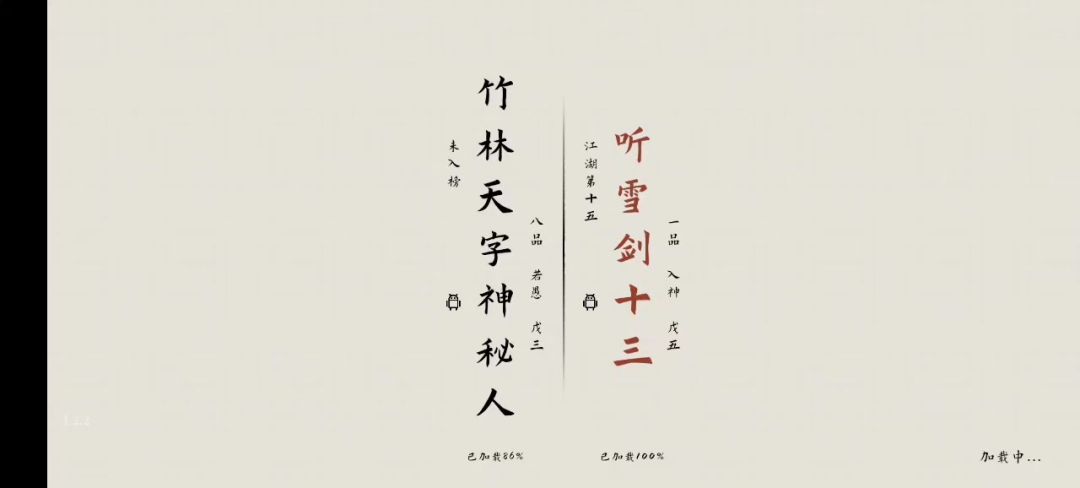 未入榜
竹林天字神秘人
八品 若愚 戊三
江湖第十五
听雪剑十三
一品 入神 戊五
已加载86%
已加载100%
加载中...
1.2.2